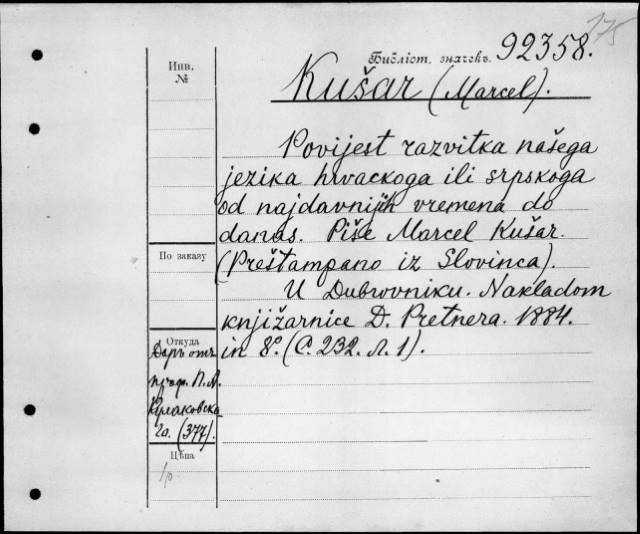 175
Библіот. значекъ 92358.
Инв.
№
Kušar (Marcel).
Povijest razvitka našega
jezika hrvackoga ili srpskoga
od najdavnijih vremena do
danas. Piše Marcel Kušar.
(Preštampano iz Slovinca).
U Dubrovniku. Nakladom
knjižarnice D. Pretnera. 1884.
in 8º. (С. 232. л. 1).
По заказу
Откуда
Даръ отъ
проф. П. А.
го. (377).
Цѣна